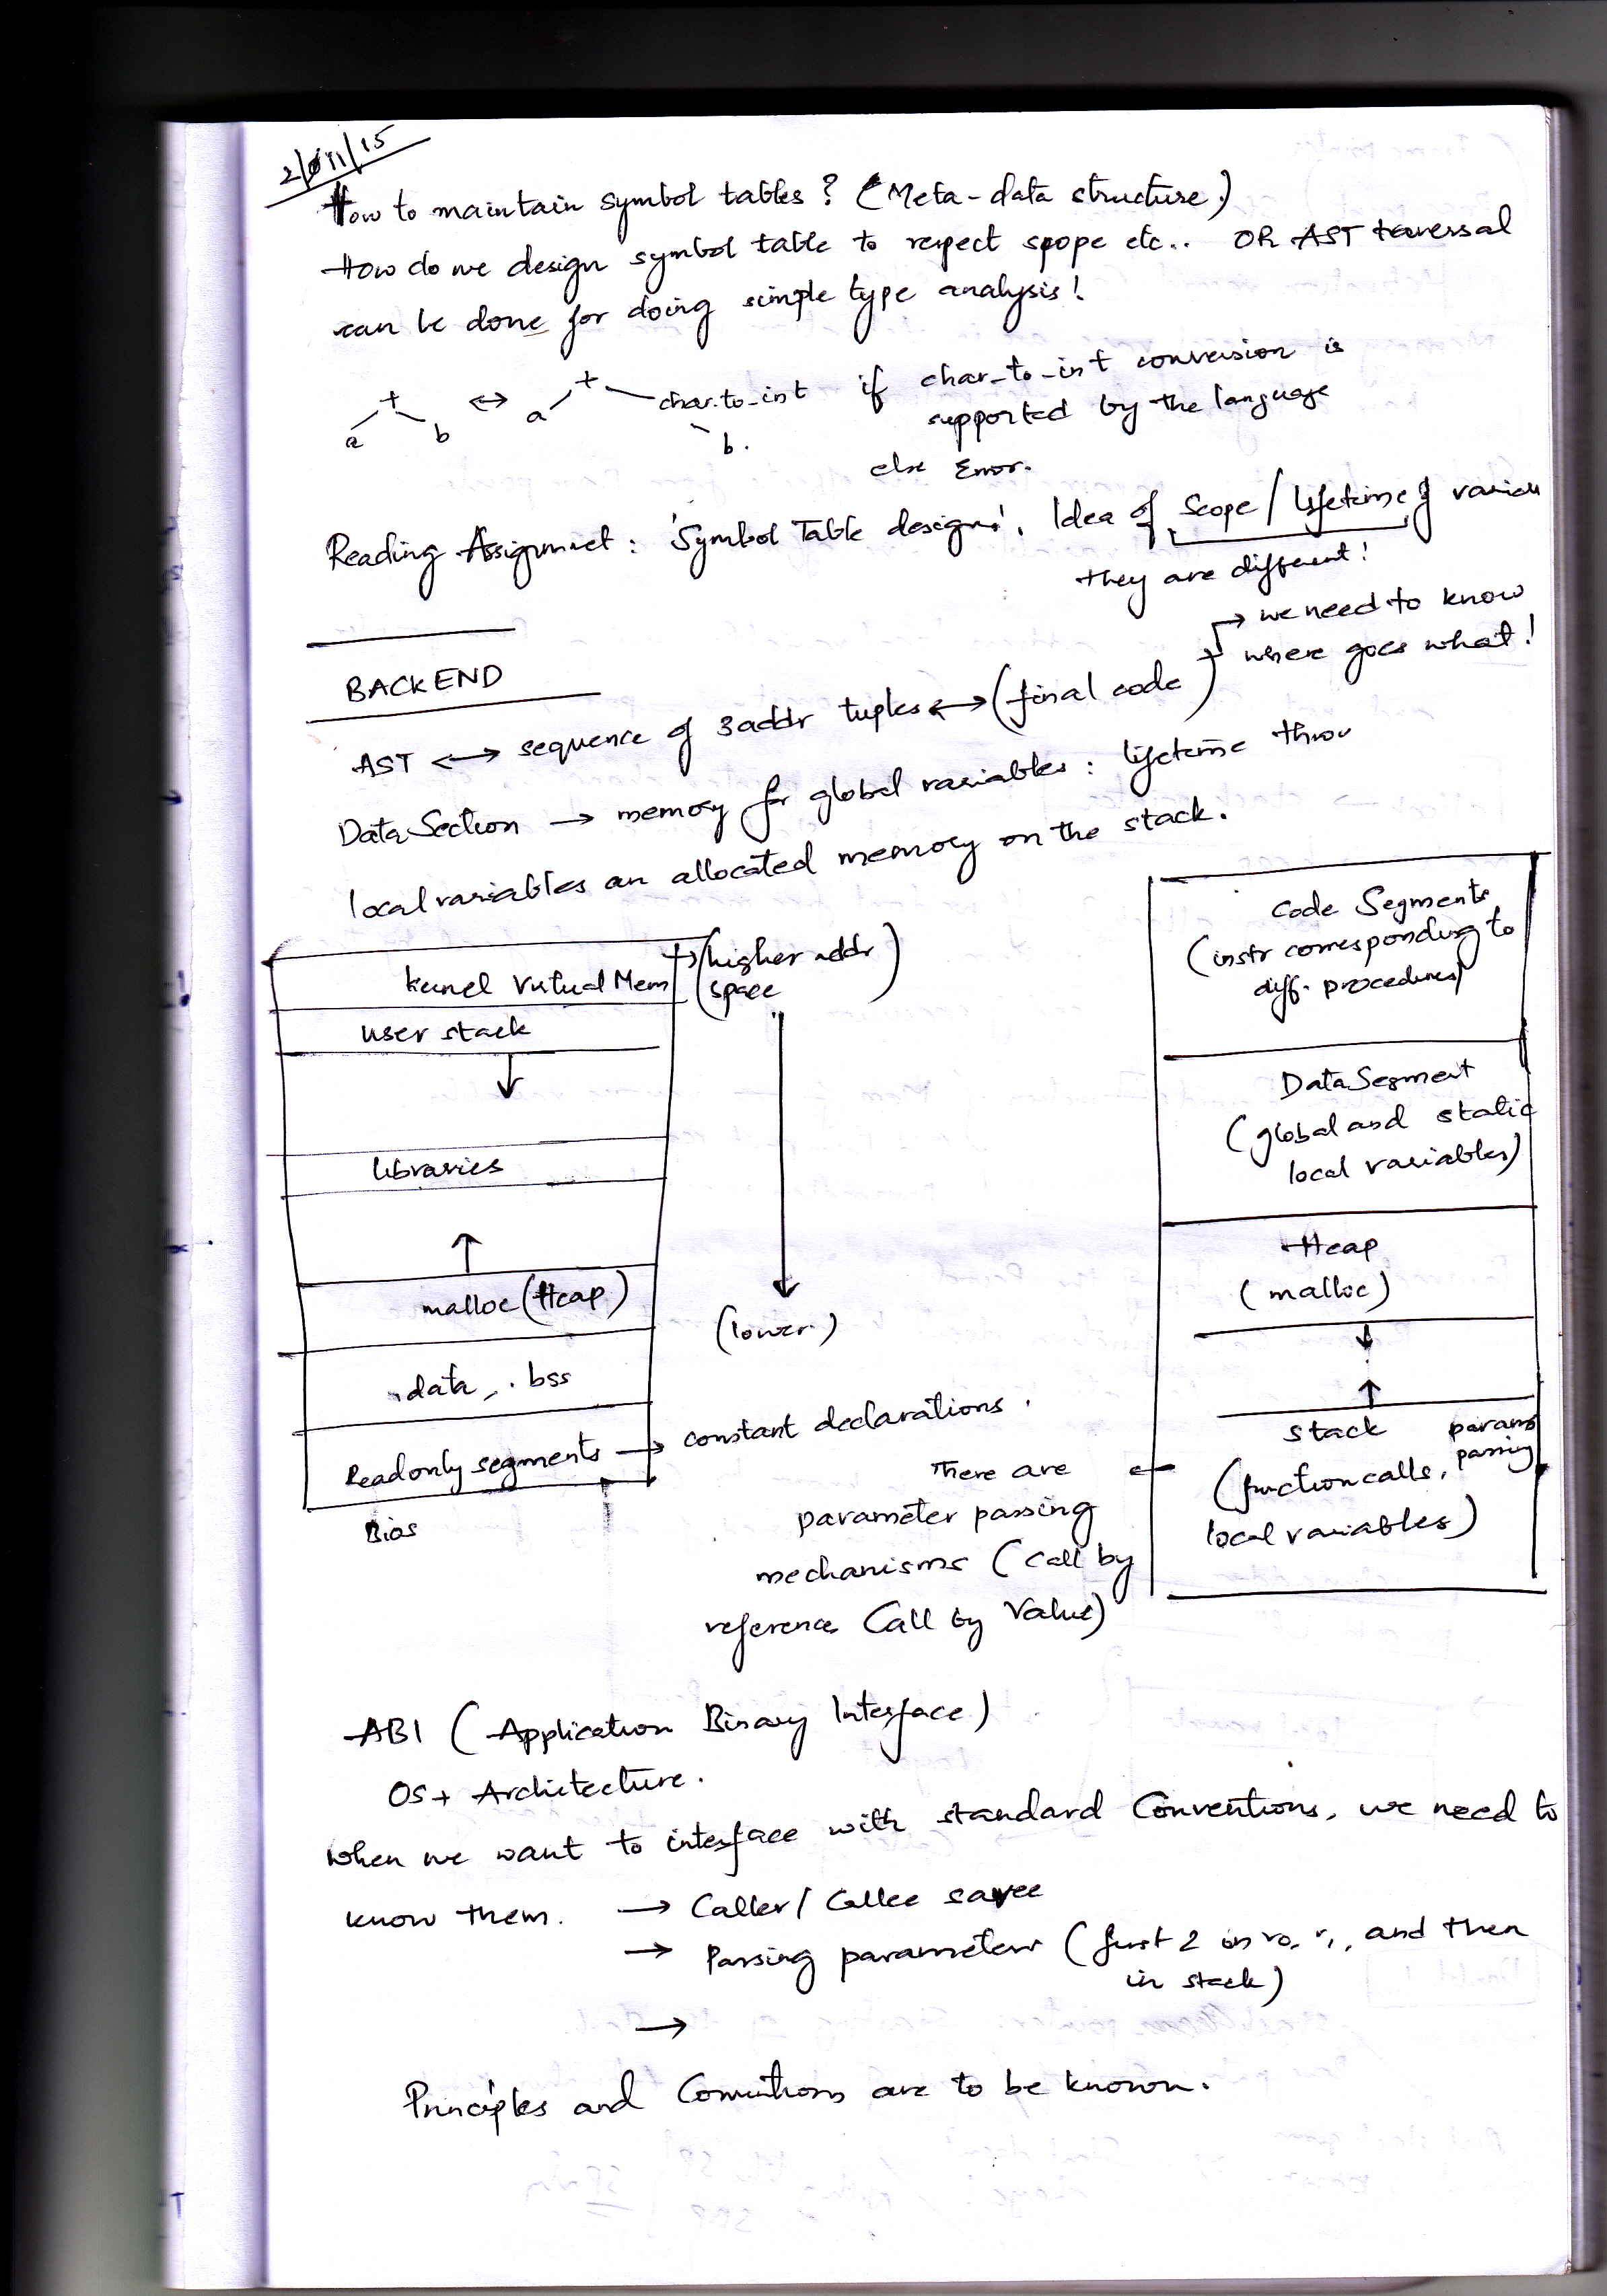 2/11/15
How to maintain symbol tables? (Meta-data structure.)
How do we design symbol table to respect spope etc.. OR AST traversal
can be done for doing simple type analysis!
+ ↔ + char_to_int if char_to_int conversion is
a b a b. supported by the language
else Error.
Reading Assignment: 'Symbol Table design', Idea of Scope/Lifetime of
they are different!
→ we need to know
where goes what!
BACKEND
AST ↔ sequence of 3addr tuples ↔ (final code)
Data Section → memory for global variables: lifetime
local variables an allocated memory on the stack.
kernel Virtual Mem
(higher addr
space)
user stack
↓
libraries
↑
malloc (Heap)
(lower.)
.data, .bss
Readonly segments → constant declarations.
Bios
Code Segments
(instr corresponding to
diff. procedures)
Data Segment
(global and static
local variables)
Heap
(malloc)
↓
↑
Stack params
passing
(function calls,
local variables)
There are ←
parameter passing
mechanisms (Call by
reference Call by Value)
ABI (Application Binary Interface)
OS + Architecture.
When we want to interface with standard Conventions, we need to
know them. → Caller/Callee savee
→ Passing parameters (first 2 in r0, r1, and then
in stack)
→
Principles and Conventions are to be known.